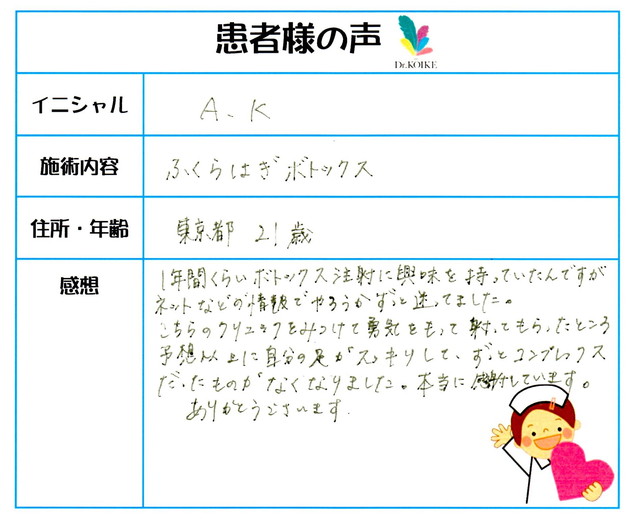 患者様の声
Dr.KOIKE
イニシャル
A.K
施術内容
ふくらはぎボトックス
住所・年齢
東京都 21歳
感想
1年間くらいボトックス注射に興味を持っていたんですが
ネットなどの情報でやろうかずっと迷ってました。
こちらのクリニックをみつけて勇気をもって射ってもらったところ
予想以上に自分の足がスッキリして、ずっとコンプレックス
だったものがなくなりました。本当に感謝しています。
ありがとうございます.